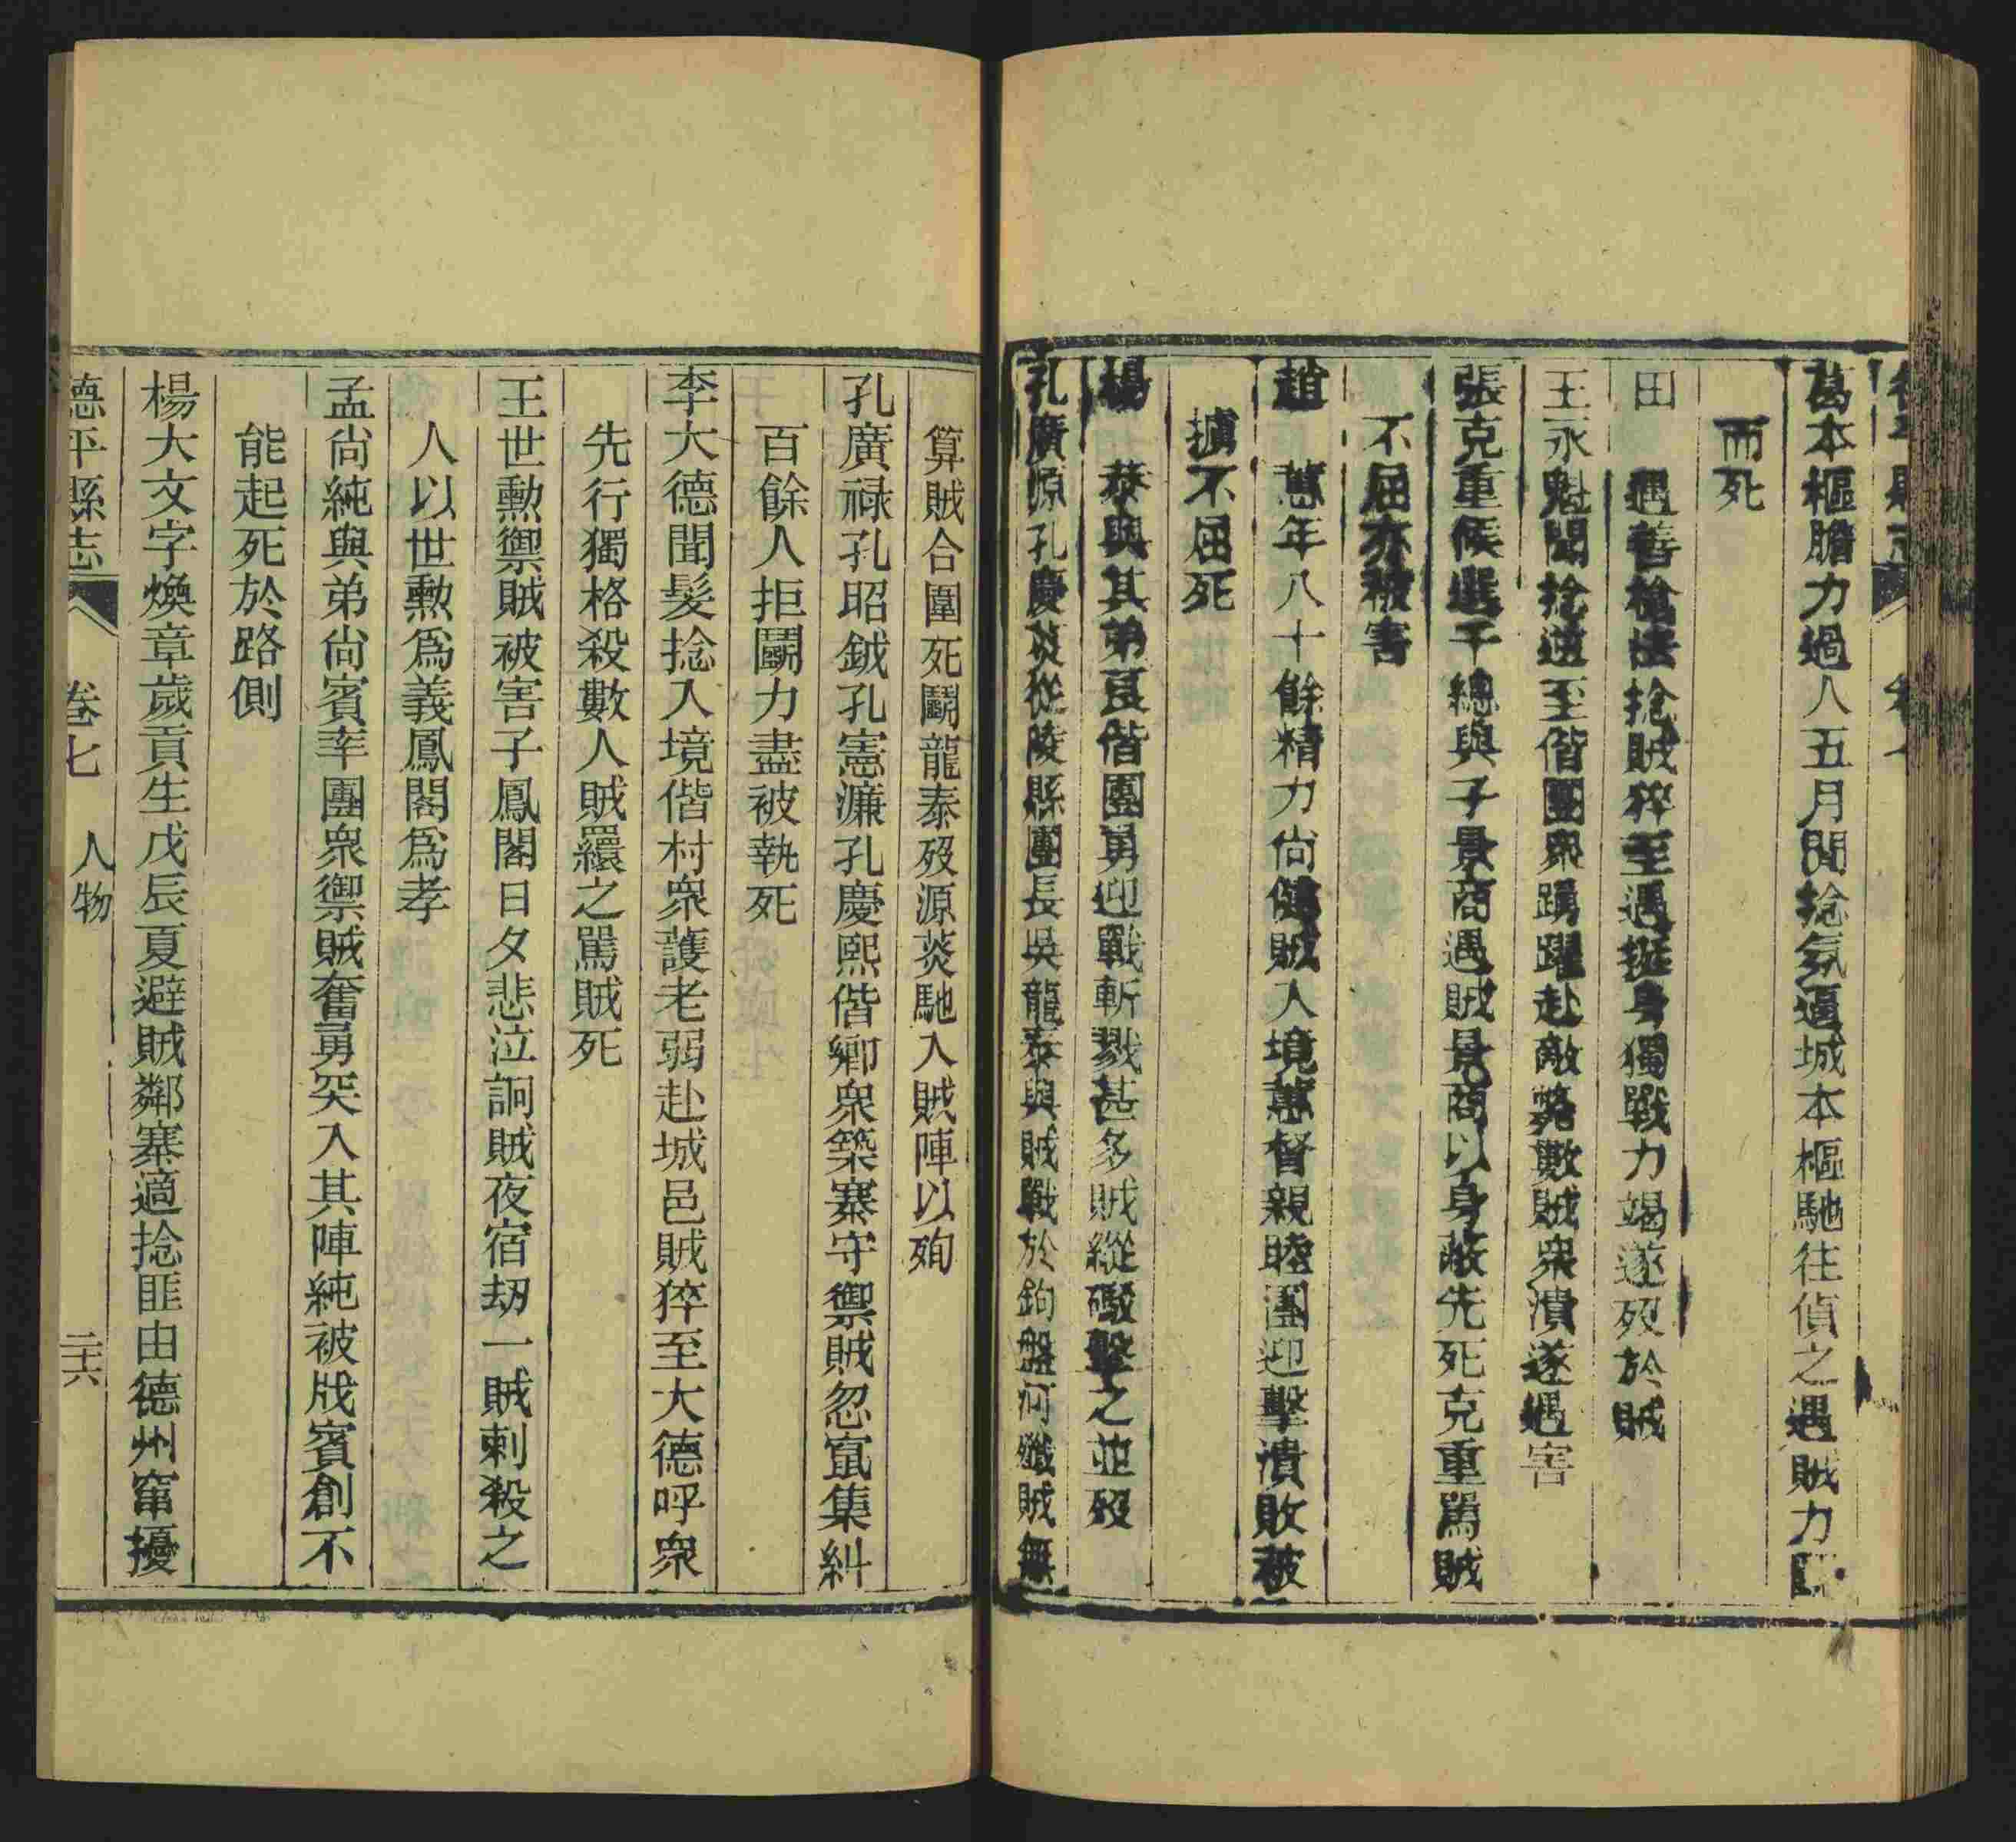 德平縣志 卷七
葛本樞膽力過人五月聞捻氛逼城本樞馳往偵之遇賊力
而死
田 遇善槍法捻賊猝至遇挺身獨戰力竭遂歿於賊
王永魁聞捻逆至偕團衆踴躍赴敵斃數賊衆潰遂遇害
張克重候選千總與子景商遇賊景商以身蔽先死克重罵賊
不屈亦被害
趙 蕙年八十餘精力尙健賊入境蕙督親睦團迎擊潰敗被
擄不屈死
楊 恭與其弟艮偕團勇迎戰斬戮甚多賊縱礮擊之並歿
孔廣源孔慶莢從陵縣團長吳龍泰與賊戰於鉤盤河殲賊無
算賊合圍死鬬龍泰歿源莢馳入賊陣以殉
孔廣祿孔昭鉞孔憲濂孔慶熙偕鄉衆築寨守禦賊忽寘集糾
百餘人拒鬬力盡被執死
李大德聞髮捻入境偕村衆護老弱赴城邑賊猝至大德呼衆
先行獨格殺數人賊繯之罵賊死
王世勲禦賊被害子鳳閣日夕悲泣詗賊夜宿刧一賊刺殺之
人以世勲爲義鳳閣爲孝
孟尙純與弟尙賓率團衆禦賊奮勇突入其陣純被戕賓創不
能起死於路側
楊大文字煥章歲貢生戊辰夏避賊鄰寨適捻匪由德州竄擾
德平縣志 卷七 人物 二十六